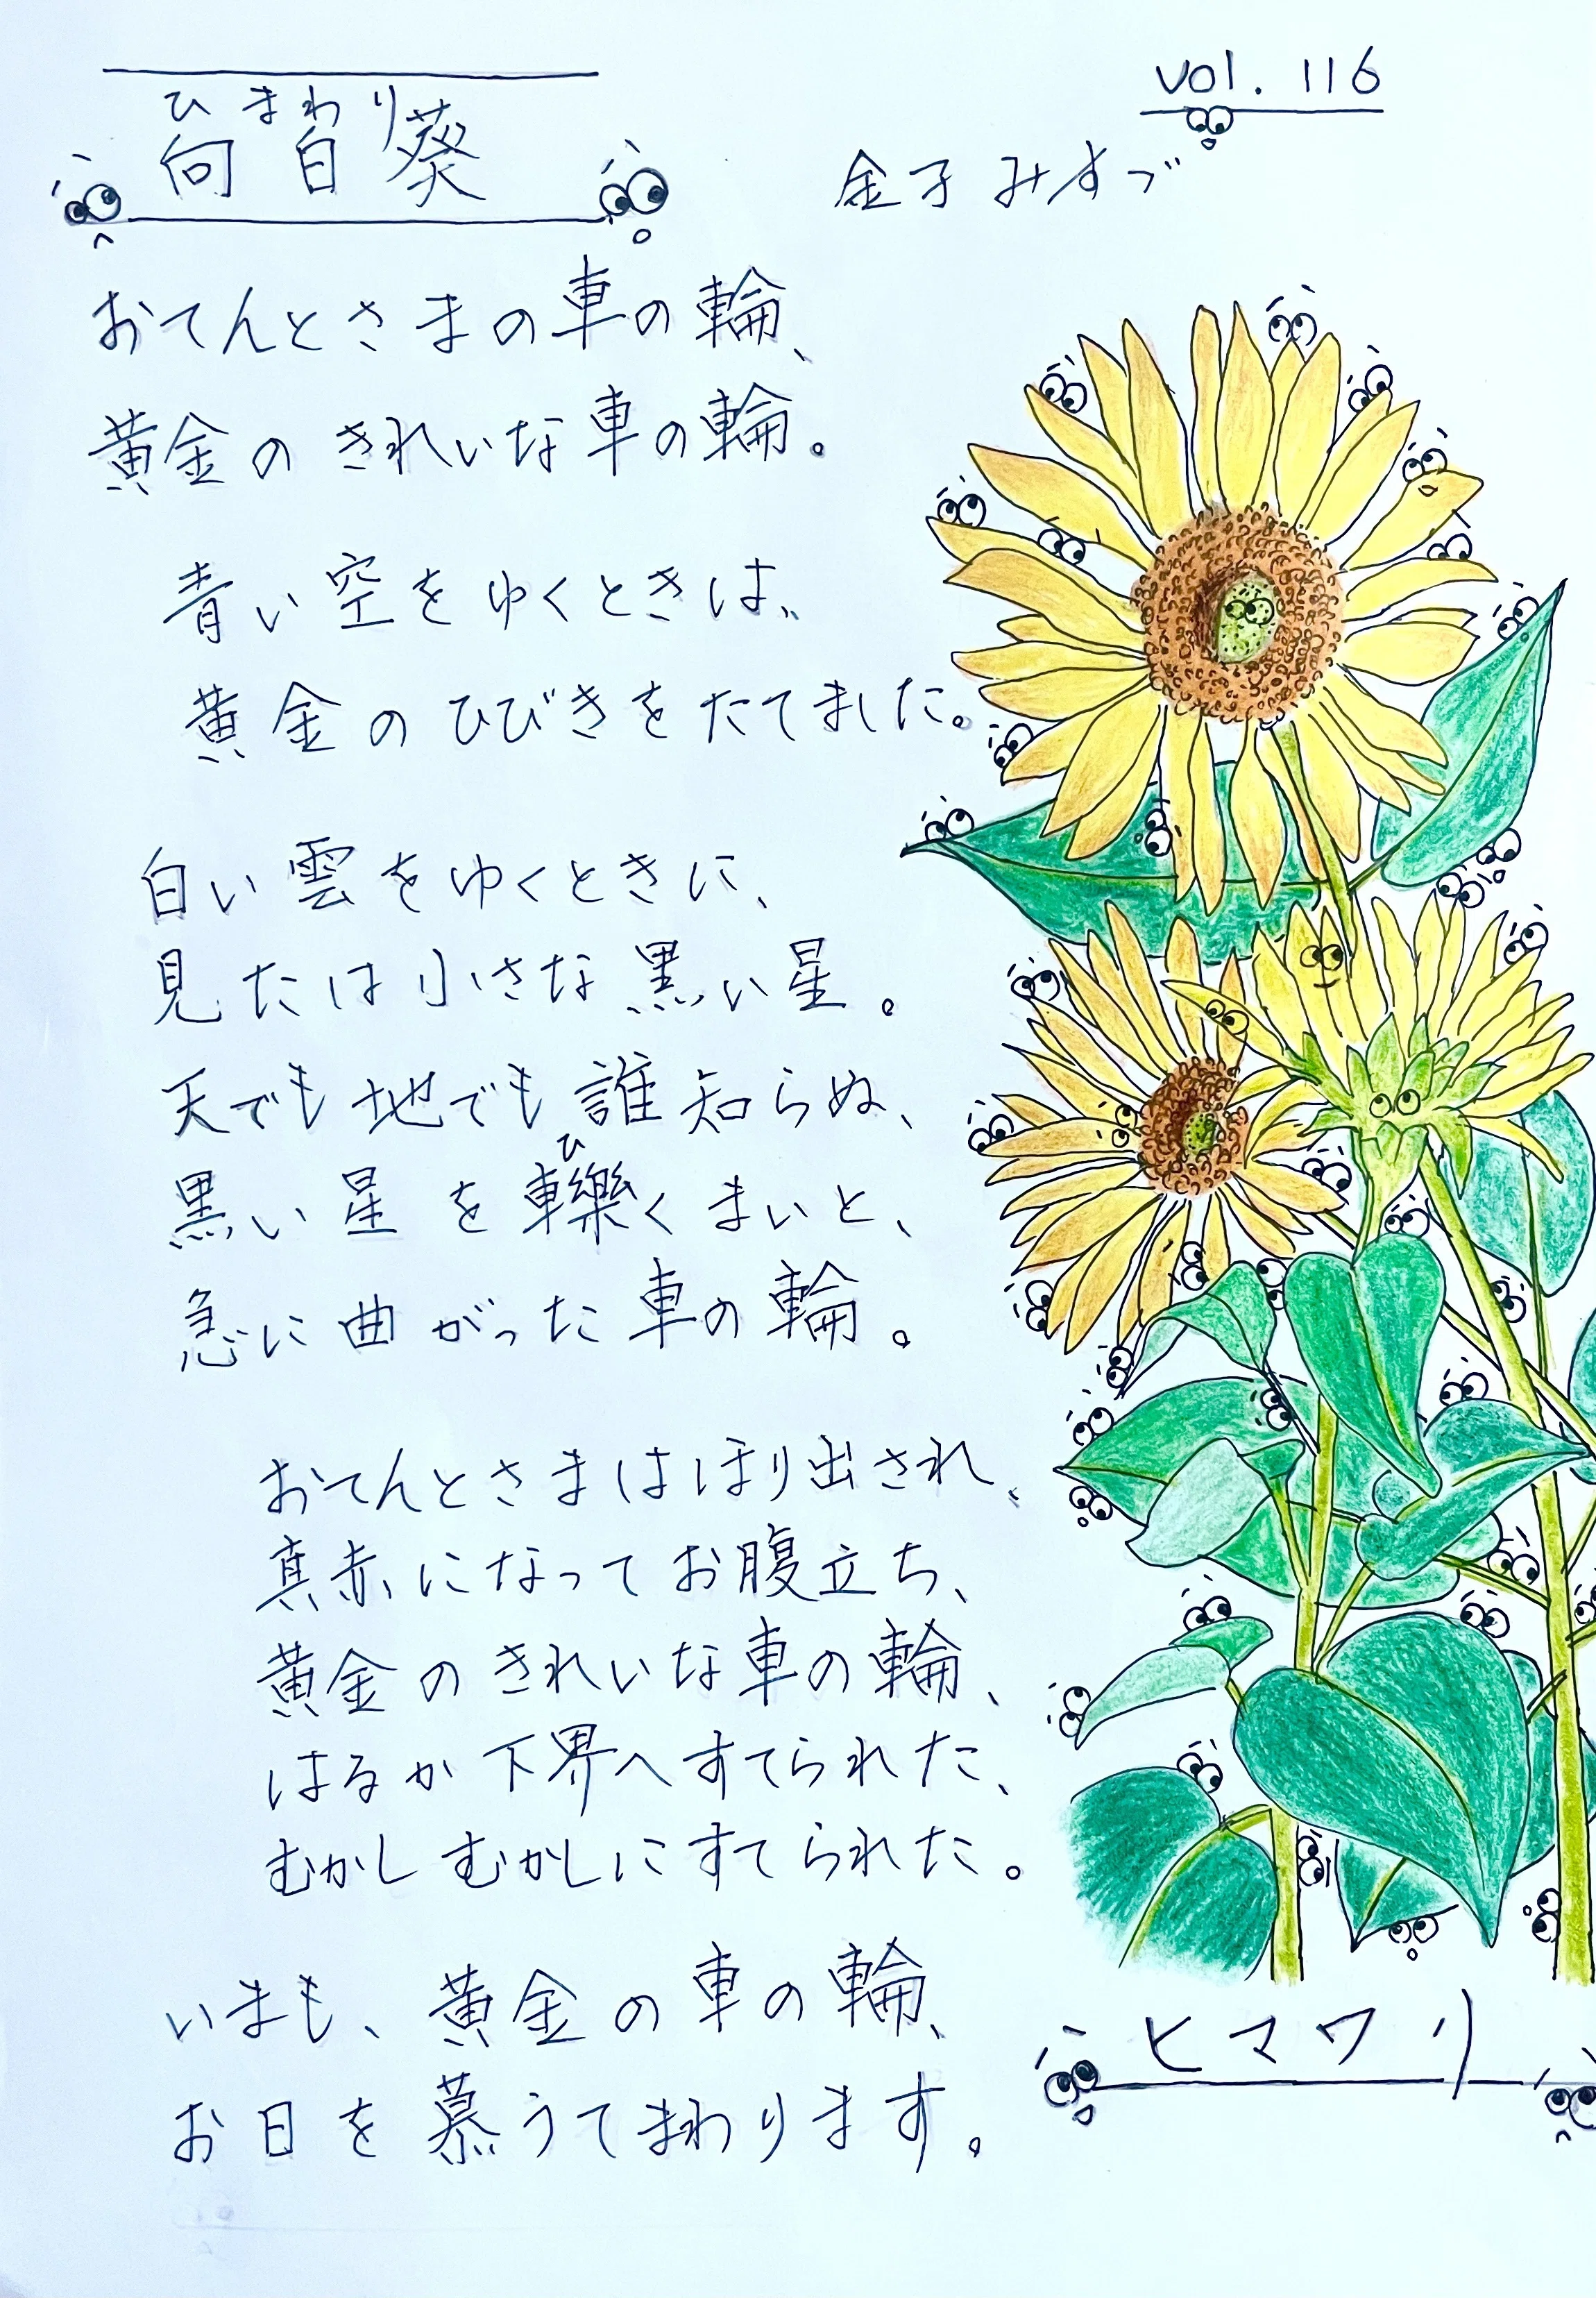 vol. 116
ひまわり
向日葵
金子みすゞ
おてんとさまの車の輪、
黄金のきれいな車の輪。
青い空をゆくときは、
黄金のひびきをたてました。
白い雲をゆくときに、
見たは小さな黒い星。
天でも地でも誰知らぬ、
ひ
黒い星を轢くまいと、
急に曲がった車の輪。
おてんとさまはほり出され、
真赤になってお腹立ち、
黄金のきれいな車の輪、
はるか下界へすてられた、
むかしむかしにすてられた。
いまも、黄金の車の輪、
お日を慕うてまわります。
ヒマワリ